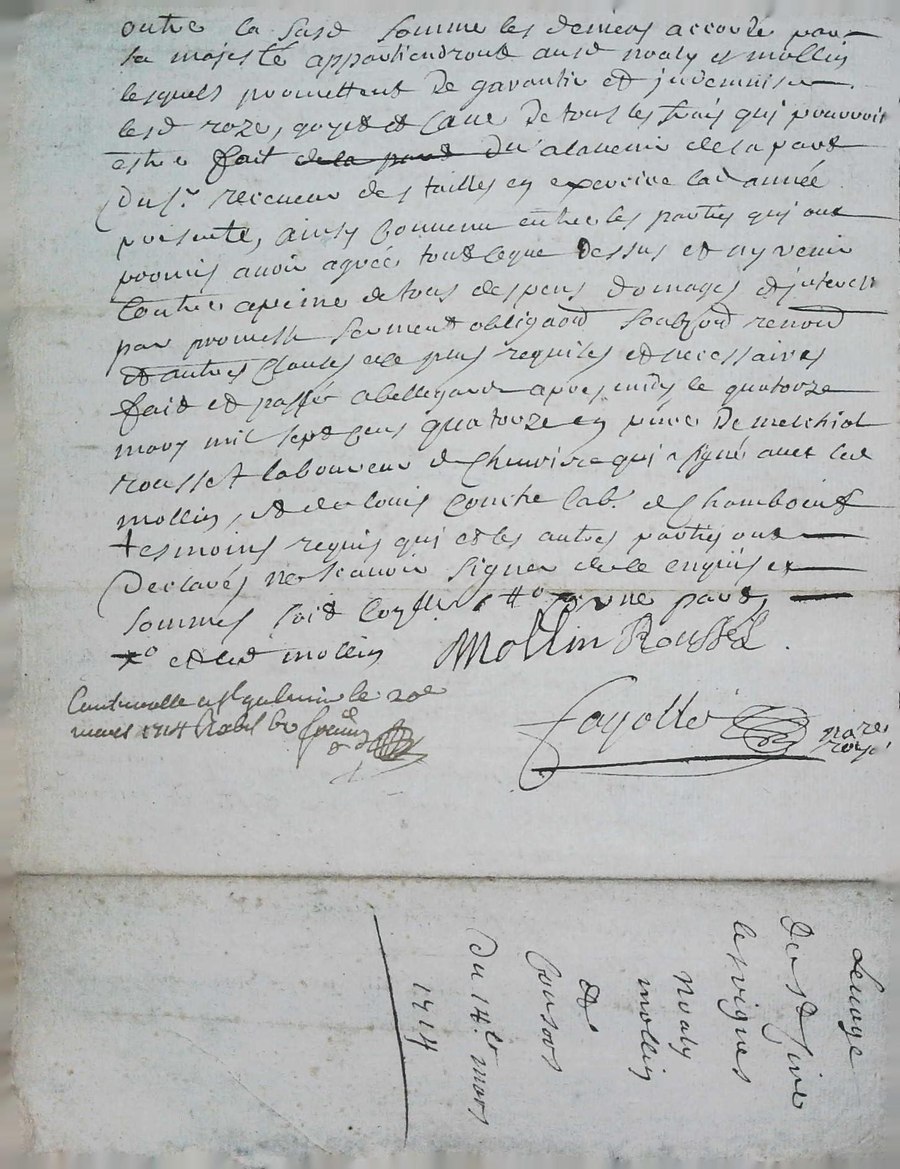 outre la susd somme les deniers accordé par
sa majesté appartiendront ausd noaly et mollin
lesquels promettent de garantir et indemniser
lesd roze, goyet et caue de tous les frais qui pourroit
estre fait de la part du a laduenir de la part
Du sr. receueur des tailles en exercice lad année
presente, ainsy conuenu entre les parties qui ont
promis auoir agreé tout ceque dessus et ny venir
Contre a peine de tous despens domages et interest
par promesse serment obligaon soubson renon
et autres clauses de plus requises et necessaires
fait et passé a bellegarde apres midy le quatorze
mars mil sept cens quatorze en pnce De melchiol
rousset laboureur de Cheuriere qui a signé auec led
mollin, et de louis conche lab. de Chamboeuf
tesmoins requis qui et les autres parties ont
Declarés ne scauoir signer de ce enquis et
sommés soit
et led mollin
Mollin Rousset.
Controlle a st galmier le 20e
mars 1714
fayolle nore
royal
Louage
De st
les vignes
noaly
mollin
et
Consors
Du 14e mars
1714